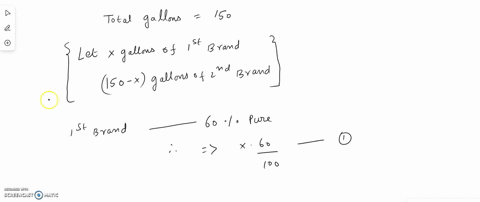 Total gallons = 150
Let x gallons of 1st Brand
(150-x) gallons of 2nd Brand
1st Brand —— 60 % Pure
∴ => x · 60/100 —— ①
RECORDED WITH
SCREENCAST MATIC